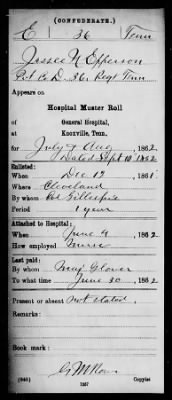 (CONFEDERATE.)
E 36 Tenn
Jessee N Epperson
Pvt Co D. 36, Regt Tenn
Appears on
Hospital Muster Roll
of
General Hospital,
Knoxville, Tenn.,
for July & Aug, 1862
Dated Sept 10 1862
Enlisted:
When Dec 12, 1861
Where Cleveland
By whom Col Gillespie
Period 1 year
Attached to Hospital:
When June 9, 1862
How employed Nurse
Last paid:
By whom Maj Glover
To what time June 30, 1862
Present or absent Not stated
Remarks:
Book mark:
(645) 1257 Copyist